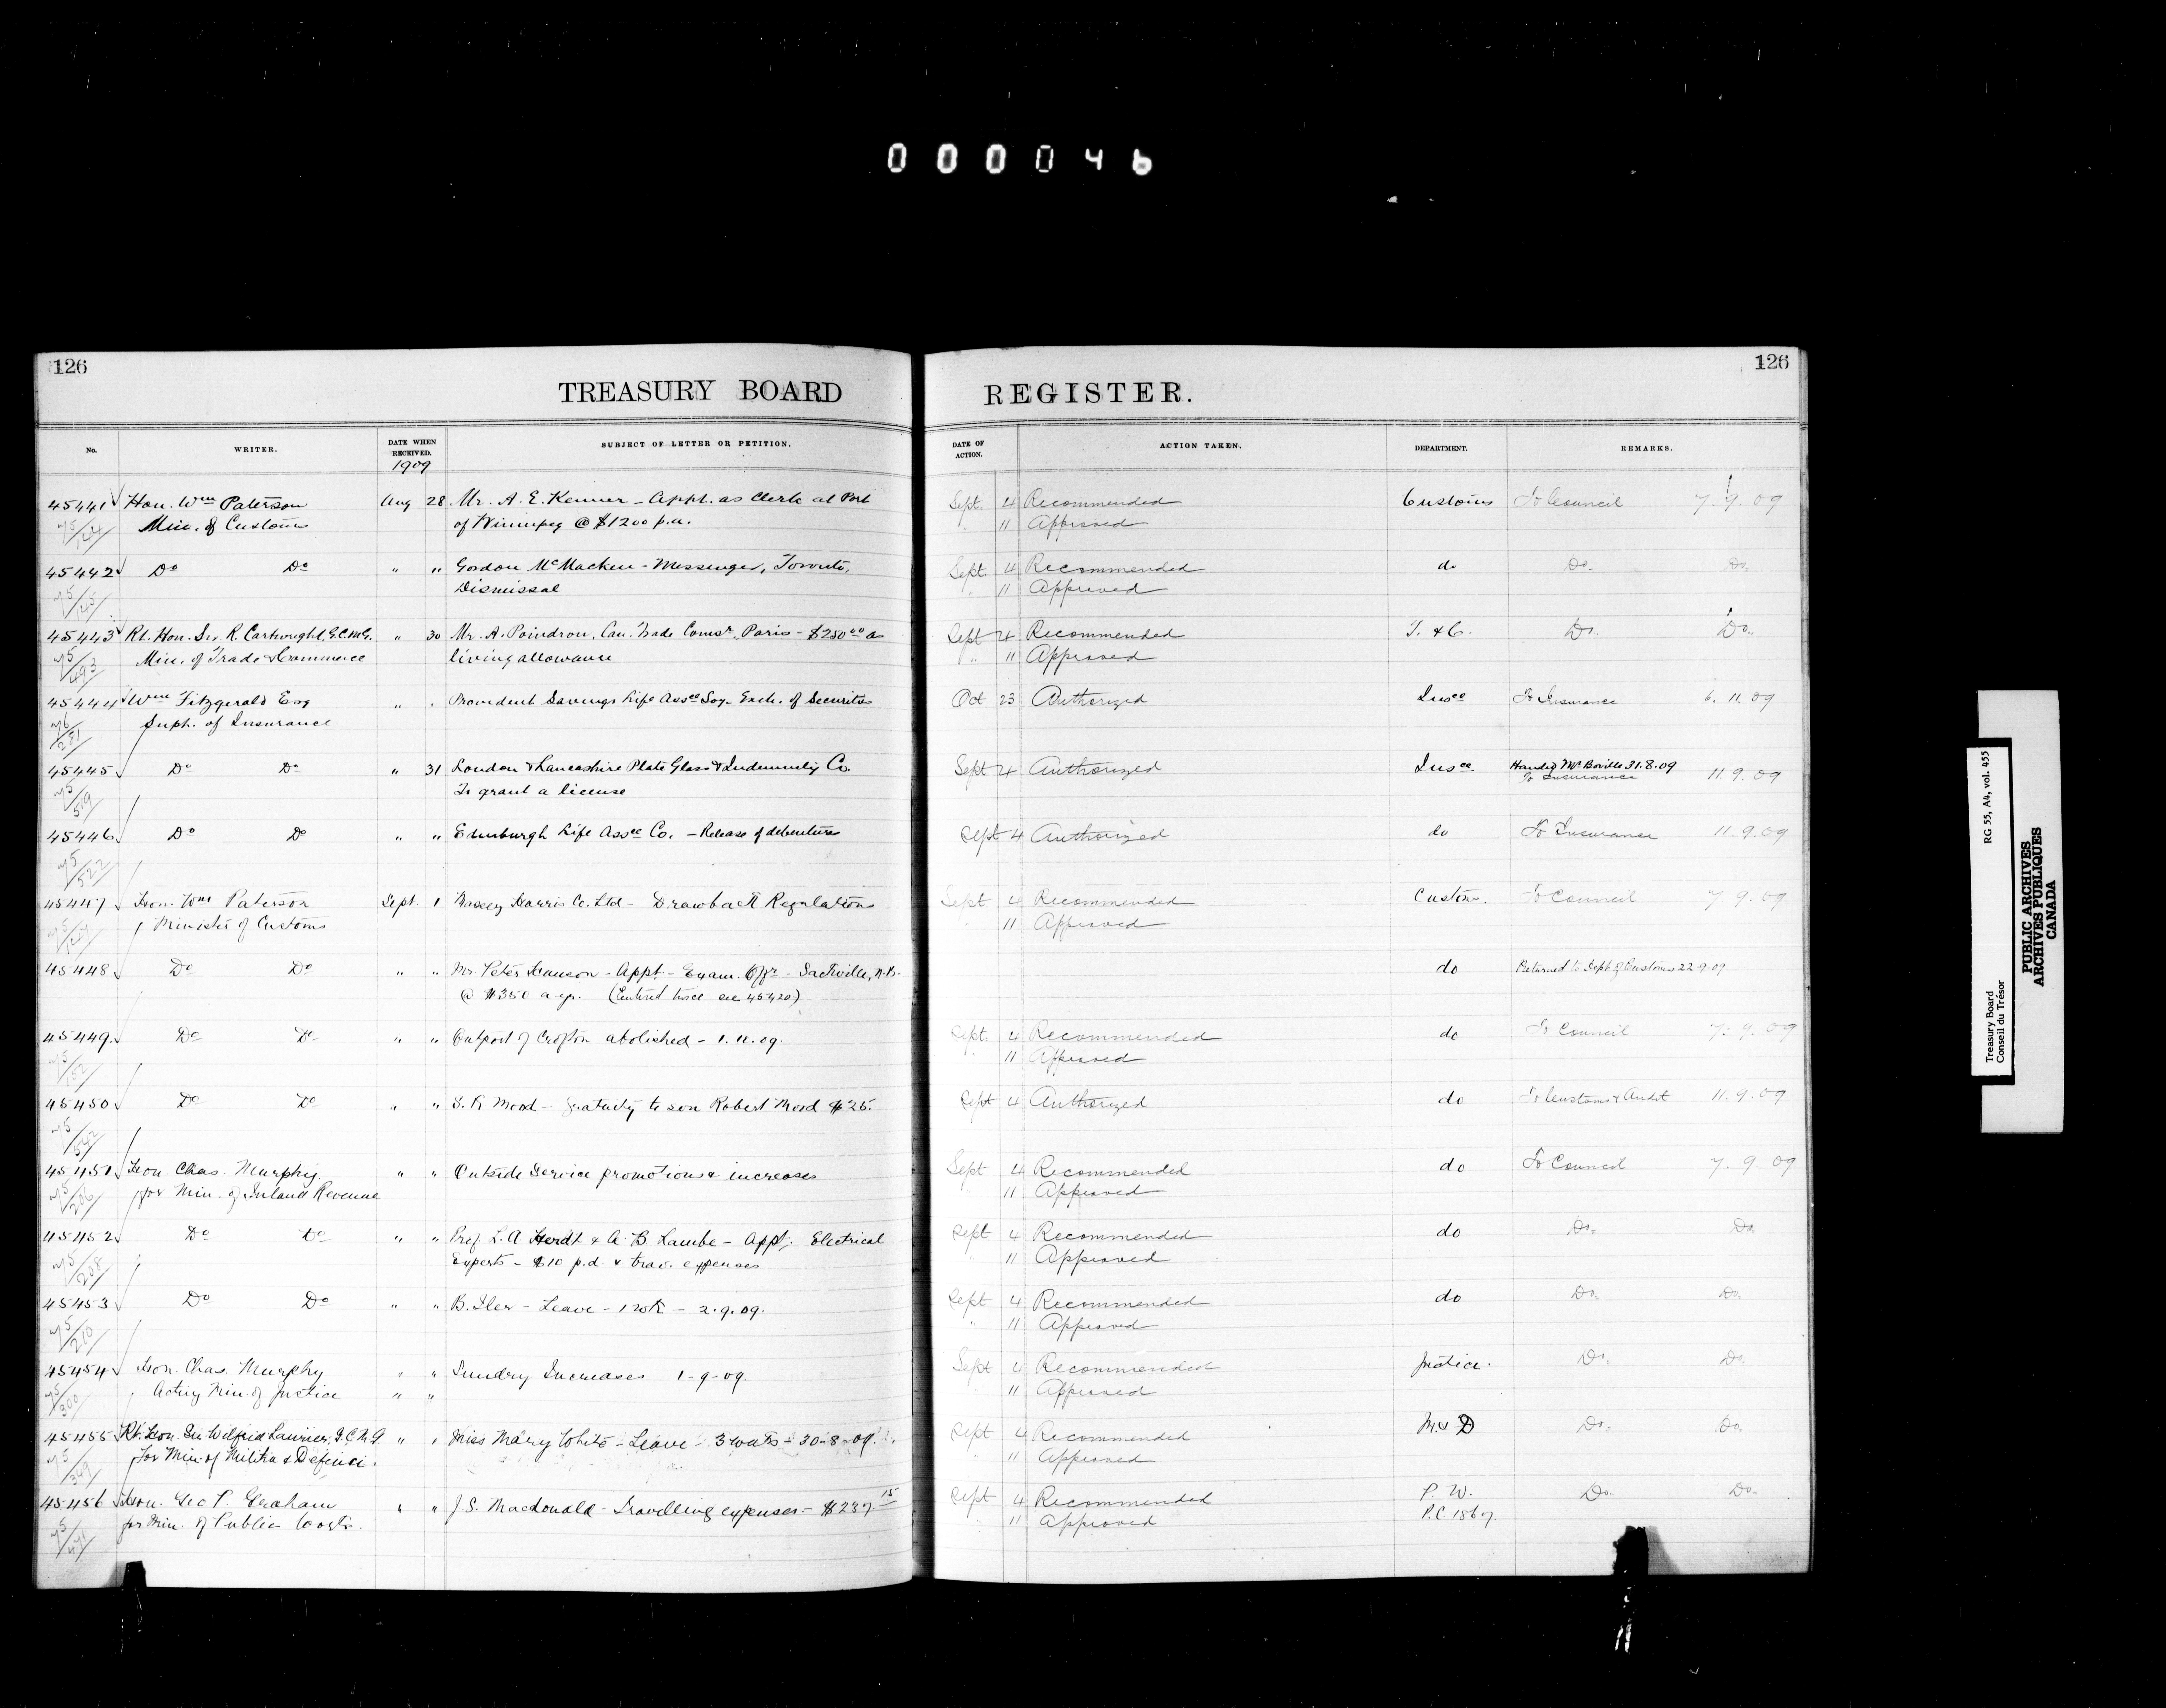 000046
126
126
TREASURY BOARD REGISTER.
No. WRITER. DATE WHEN RECEIVED. SUBJECT OF LETTER OR PETITION. DATE OF ACTION. ACTION TAKEN. DEPARTMENT. REMARKS.
1909
45441 Hon. Wm Paterson Aug 28 Mr. A. E. Kenner - Appt. as Clerk at Port Sept. 4 Recommended Customs To Council 7.9.09
Min. of Customs of Winnipeg @ $1200 p.a. 11 Approved
45442 Do Do " " Gordon McMacken - Messenger, Toronto, Sept. 4 Recommended do Do. Do.
Dismissal " 11 Approved
45443 Rt. Hon. Sir R. Cartwright, G.C.M.G. " 30 Mr. A. Poindron, Can. Trade Comsr, Paris - $250.00 as Sept 4 Recommended T. & C. Do. Do.
Min. of Trade & Commerce living allowance " 11 Approved
45444 Wm Fitzgerald Esq " " Provident Savings Life Assce Socy - Exch. of Securities Oct 23 Authorized Insce To Insurance 6.11.09
Supt. of Insurance
45445 Do Do " 31 London & Lancashire Plate Glass & Indemnity Co. Sept 4 Authorized Insce Handed Mr Boville 31.8.09
To grant a license To Insurance 11.9.09
45446 Do Do " " Edinburgh Life Assce Co. - Release of debentures Sept 4 Authorized do To Insurance 11.9.09
45447 Hon. Wm Paterson Sept. 1 Massey Harris Co. Ltd - Drawback Regulations Sept 4 Recommended Customs. To Council 7.9.09
Minister of Customs " 11 Approved
45448 Do Do " " Mr. Peter Hanson - Appt. - Exam. Offr - Sackville, N.B. do Returned to Dept of Customs 22.9.09
@ $350 a yr. (Entered twice see 45420)
45449 Do Do " " Outport of Crofton abolished - 1.11.09. Sept. 4 Recommended do To Council 7.9.09
11 Approved
45450 Do Do " " S. R. Mood - Gratuity to son Robert Mood $25. Sept 4 Authorized do To Customs & Audit 11.9.09
45451 Hon. Chas. Murphy " " Outside Service promotions & increases Sept 4 Recommended do To Council 7.9.09
for Min. of Inland Revenue 11 Approved
45452 Do Do " " Prof. L. A. Herdt & A. B. Lambe - Appt. Electrical Sept 4 Recommended do Do. Do.
Experts - $10 p.d. & trav. expenses 11 Approved
45453 Do Do " " B. Iler - Leave - 1 wk - 2.9.09. Sept 4 Recommended do Do. Do.
" 11 Approved
45454 Hon. Chas. Murphy " " Sundry Increases 1-9-09. Sept 4 Recommended Justice. Do. Do.
Acting Min. of Justice " " " 11 Approved
45455 Rt. Hon. Sir Wilfrid Laurier, G.C.M.G " " Miss Mary White - Leave - 3 weeks - 30-8-09. Sept 4 Recommended M. & D Do. Do.
for Min of Militia & Defence. 11 Approved
45456 Hon. Geo P. Graham " " J. S. Macdonald - Travelling expenses - $237 15 Sept 4 Recommended P. W. Do. Do.
for Min. of Public Works. " 11 Approved P.C. 1867.
Treasury Board RG 55, A4, vol. 455
Conseil du Trésor
PUBLIC ARCHIVES
ARCHIVES PUBLIQUES
CANADA